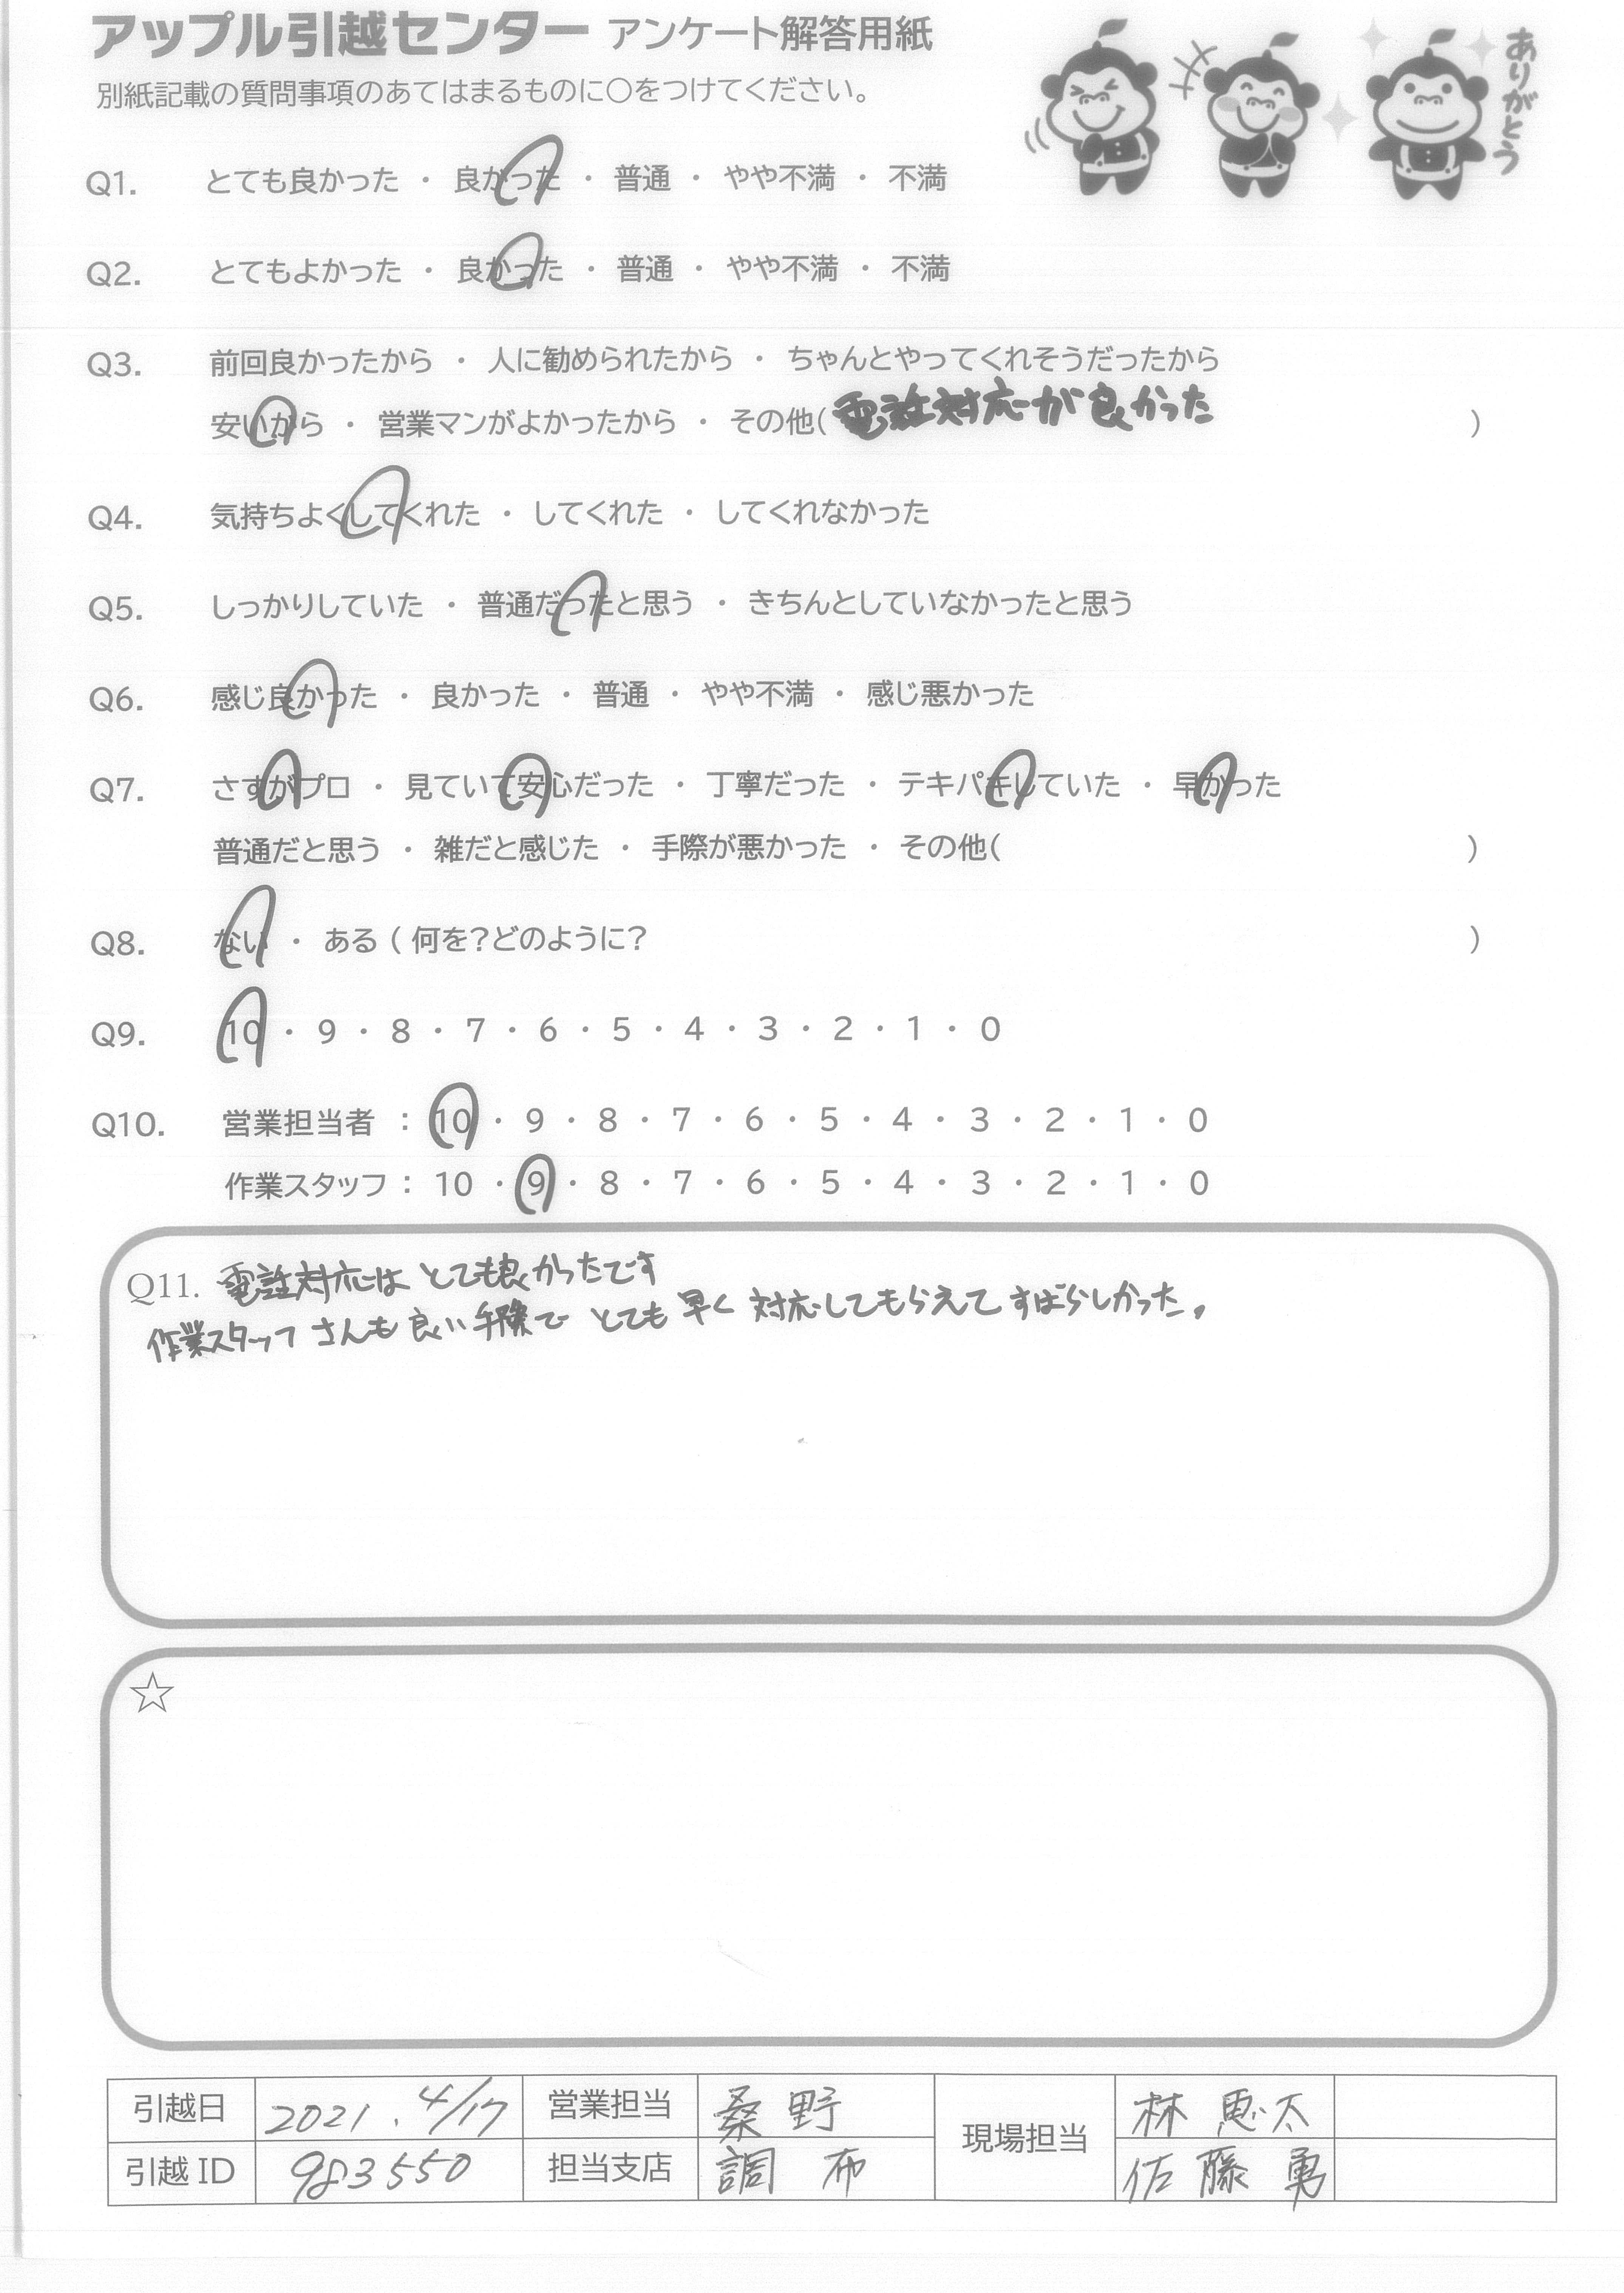 アップル引越センター アンケート解答用紙
ありがとう
別紙記載の質問事項のあてはまるものに○をつけてください。
Q1. とても良かった ・ 良かった ・ 普通 ・ やや不満 ・ 不満
Q2. とてもよかった ・ 良かった ・ 普通 ・ やや不満 ・ 不満
Q3. 前回良かったから ・ 人に勧められたから ・ ちゃんとやってくれそうだったから
安いから ・ 営業マンがよかったから ・ その他( 電話対応が良かった )
Q4. 気持ちよくしてくれた ・ してくれた ・ してくれなかった
Q5. しっかりしていた ・ 普通だったと思う ・ きちんとしていなかったと思う
Q6. 感じ良かった ・ 良かった ・ 普通 ・ やや不満 ・ 感じ悪かった
Q7. さすがプロ ・ 見ていて安心だった ・ 丁寧だった ・ テキパキしていた ・ 早かった
普通だと思う ・ 雑だと感じた ・ 手際が悪かった ・ その他( )
Q8. ない ・ ある ( 何を?どのように? )
Q9. 10 ・ 9 ・ 8 ・ 7 ・ 6 ・ 5 ・ 4 ・ 3 ・ 2 ・ 1 ・ 0
Q10. 営業担当者 : 10 ・ 9 ・ 8 ・ 7 ・ 6 ・ 5 ・ 4 ・ 3 ・ 2 ・ 1 ・ 0
作業スタッフ : 10 ・ 9 ・ 8 ・ 7 ・ 6 ・ 5 ・ 4 ・ 3 ・ 2 ・ 1 ・ 0
Q11. 電話対応は とても良かったです
作業スタッフ さんも 良い 手際で とても 早く 対応してもらえて すばらしかった。
☆
引越日 2021.4/17 営業担当 桑野 現場担当 林 恵太
引越ID 983550 担当支店 調布 佐藤 勇